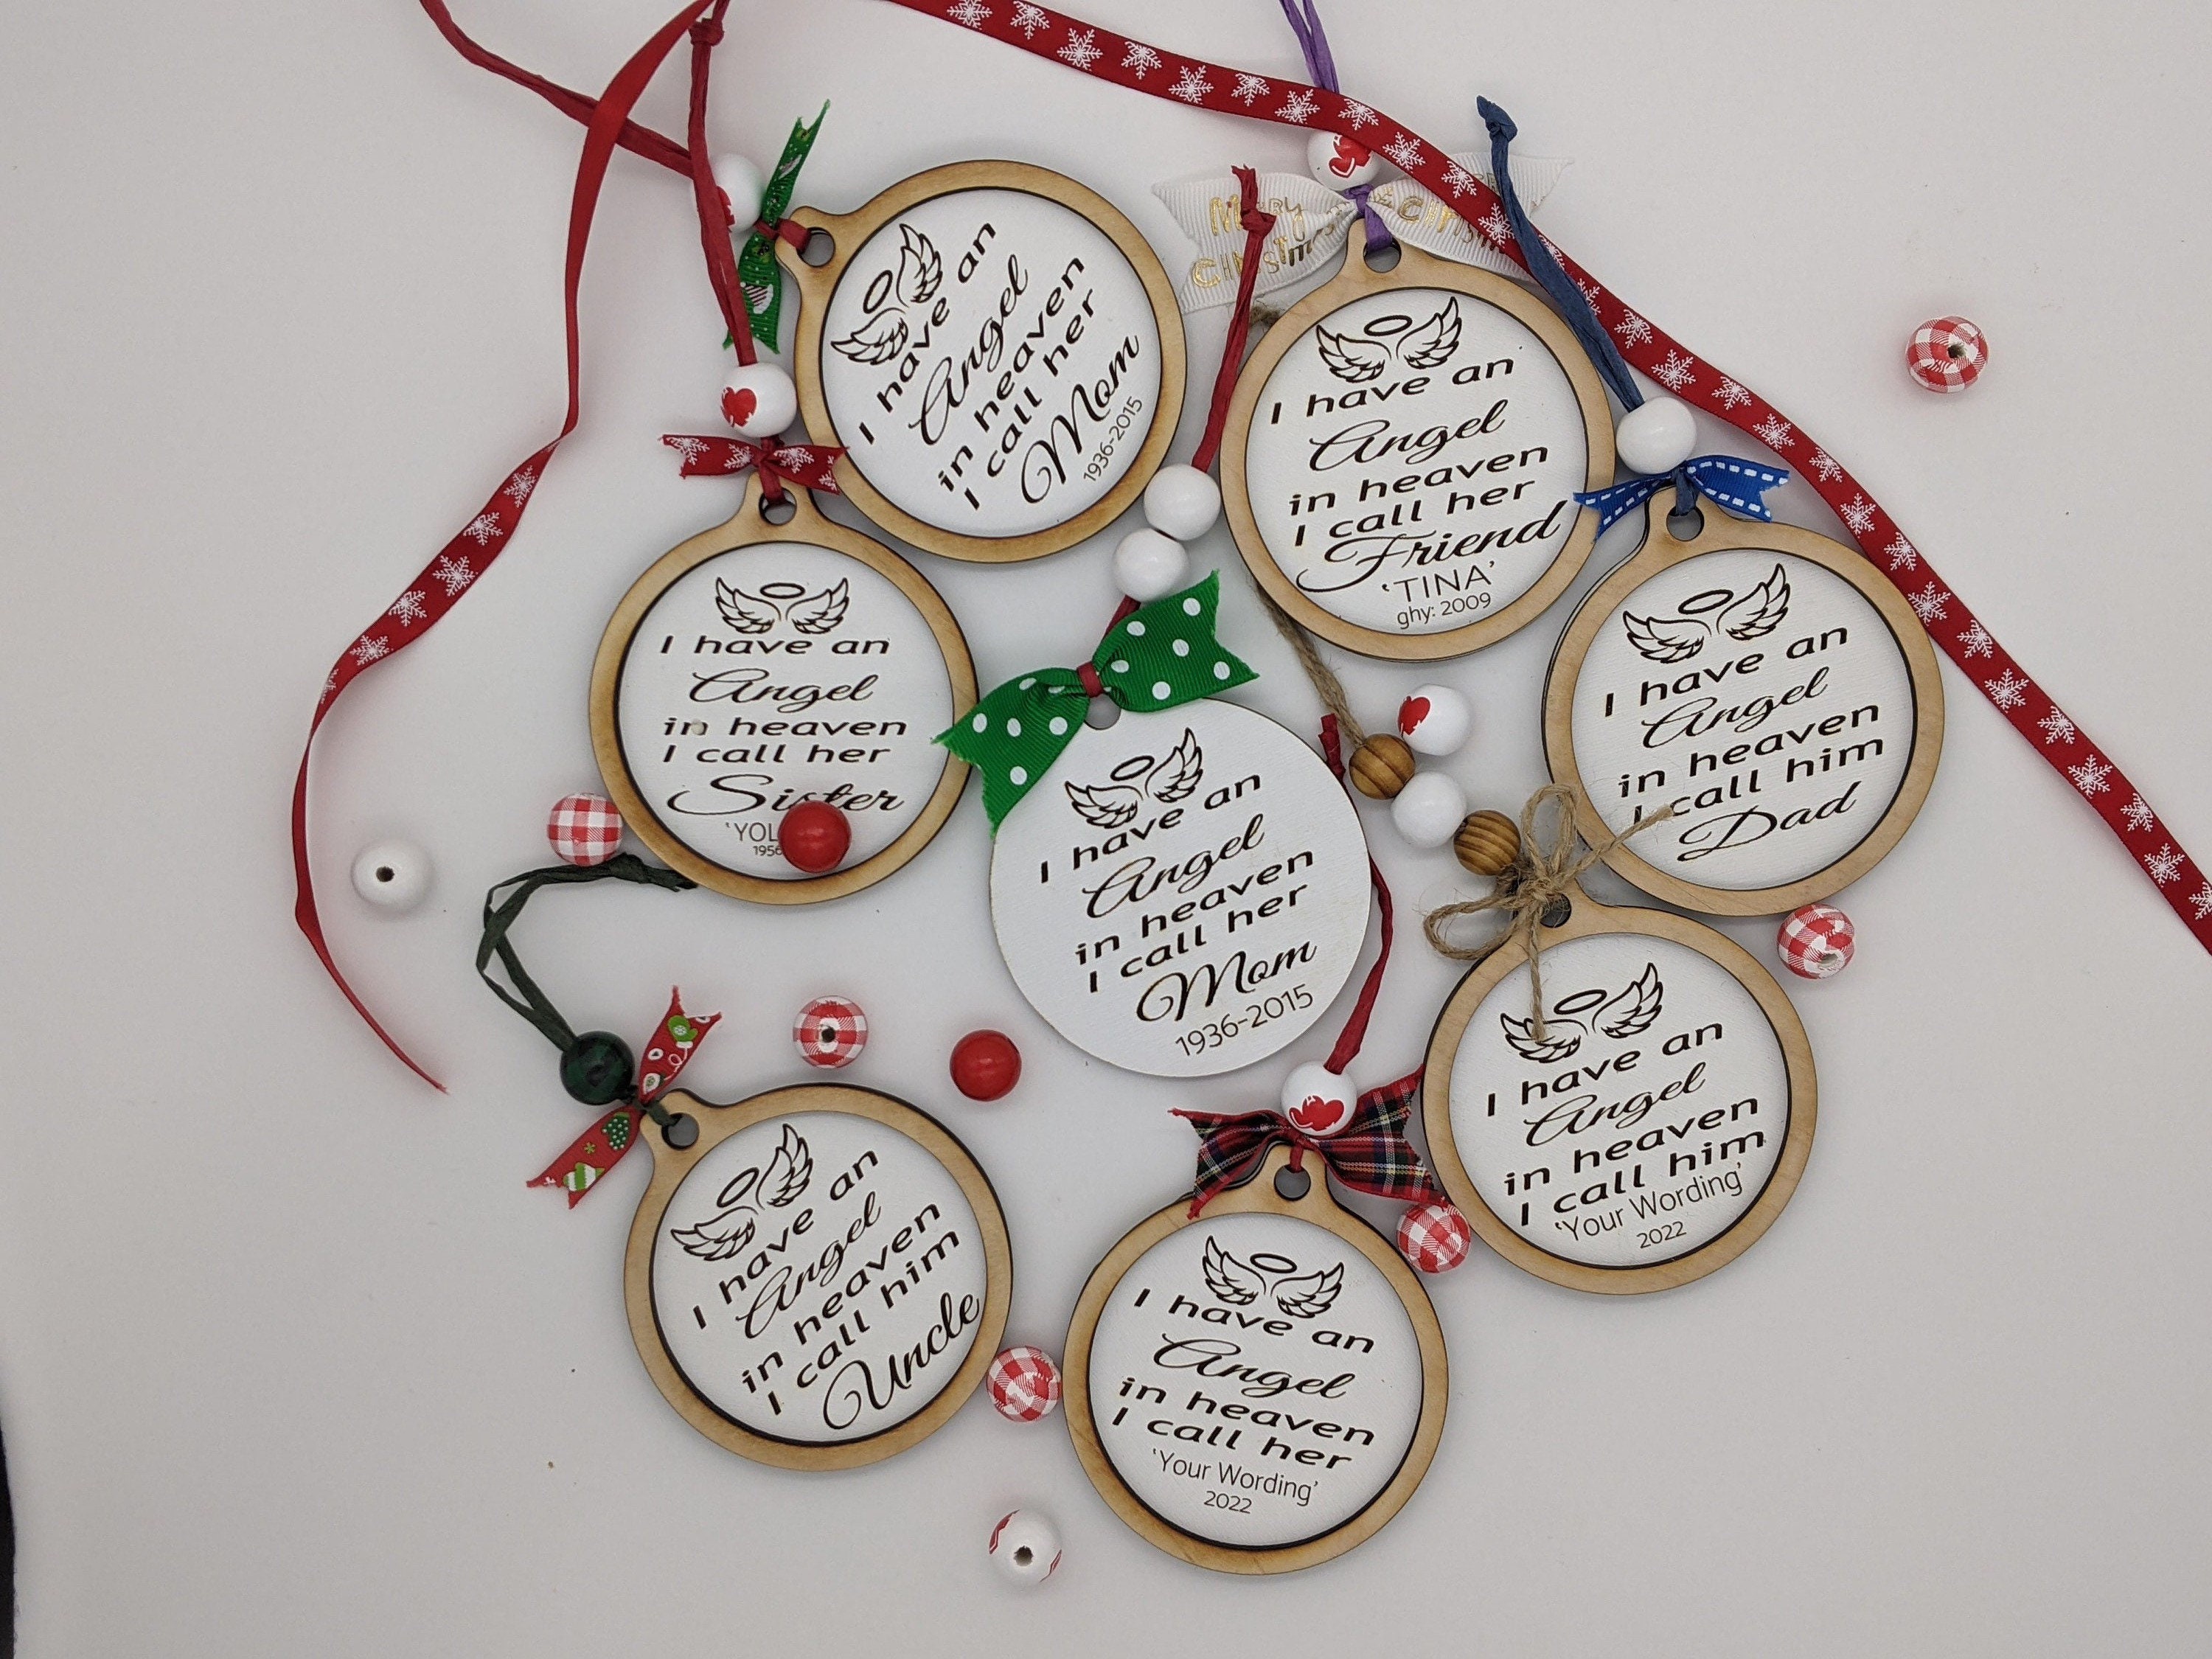 I have an
Angel
in heaven
I call her
Mom
1936-2015
Merry
Christmas
I have an
Angel
in heaven
I call her
Friend
'TINA'
ghy: 2009
I have an
Angel
in heaven
I call her
Sister
I have an
Angel
in heaven
I call him
Dad
I have an
Angel
in heaven
I call her
Mom
1936-2015
I have an
Angel
in heaven
I call him
'Your Wording'
2022
I have an
Angel
in heaven
I call him
Uncle
I have an
Angel
in heaven
I call her
'Your Wording'
2022